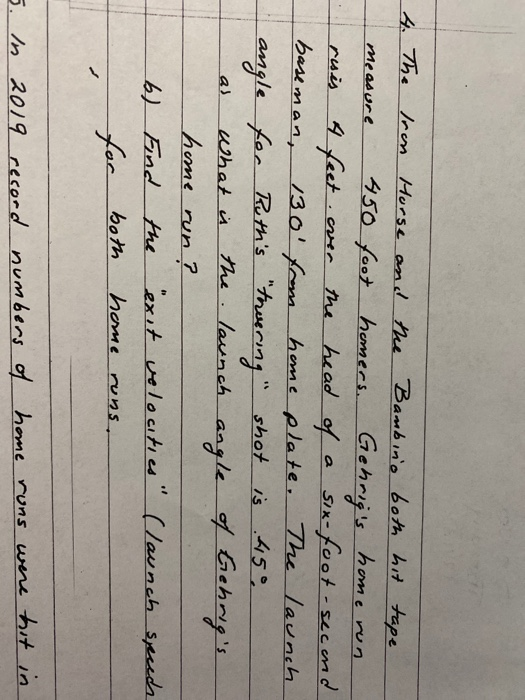 4. The Iron Horse and the Bambino both hit tape
measure 450 foot homers. Gehrig's home run
rises 4 feet over the head of a six-foot-second
baseman, 130' from home plate. The launch
angle for Ruth's "towering" shot is 45°.
a) What is the launch angle of Gehrig's
home run?
b) Find the "exit velocities" (launch speeds
for both home runs.
5. In 2019 record numbers of home runs were hit in